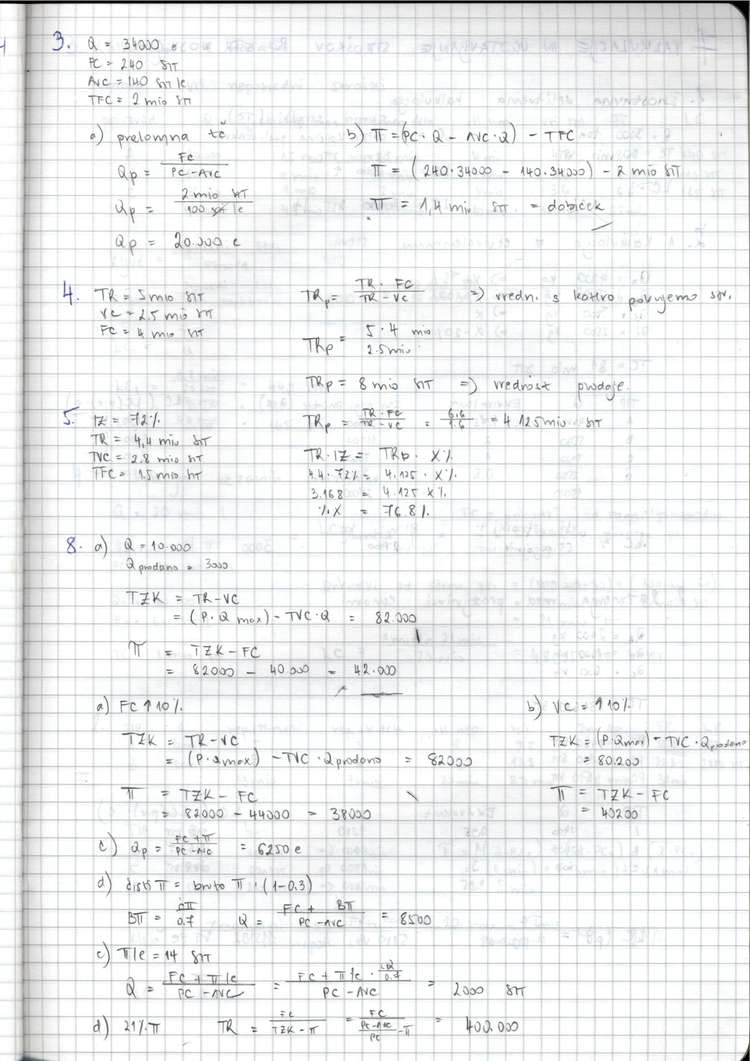 3. Q = 34000 e
PC = 240 SIT
AVC = 140 SIT/e
TFC = 2 mio SIT
a) prelomna tč.
Qp = FC / PC - AVC
Qp = 2 mio SIT / 100 SIT/e
Qp = 20.000 e
b) π = (PC · Q - AVC · Q) - TFC
π = (240·34000 - 140·34000) - 2 mio SIT
π = 1,4 mio SIT = dobiček
4. TR = 5 mio SIT
VC = 2.5 mio SIT
FC = 4 mio SIT
TRp = TR · FC / TR - VC => vredn. s katero pokrijemo str.
TRp = 5 · 4 mio / 2.5 mio
TRp = 8 mio SIT => vrednost prodaje.
5. IZ = 72%
TR = 4,4 mio SIT
TVC = 2.8 mio SIT
TFC = 1.5 mio SIT
TRp = TR · FC / TR - VC = 6.6 / 1.6 = 4 125 mio SIT
TR · IZ = TRp · X%
4.4 · 72% = 4.125 · X%
3.168 = 4.125 X%
% X = 76 8%
8. a) Q = 10.000
Q prodano = 3000
TZK = TR - VC
= (P · Q max) - TVC · Q = 82.000
π = TZK - FC
= 82000 - 40.000 = 42.000
a) FC ↑ 10%
TZK = TR - VC
= (P · Qmax) - TVC · Qprodano = 82000
π = TZK - FC
= 82000 - 44000 = 38000
b) VC = ↑ 10%
TZK = (P · Qmax) - TVC · Qprodano
= 80.200
π = TZK - FC
= 40200
c) Qp = FC + π / PC - AVC = 6250 e
d) čisti π = bruto π · (1 - 0.3)
Bπ = čπ / 0.7 Q = FC + Bπ / PC - AVC = 8500
c) π/e = 14 SIT
Q = FC + π/e / PC - AVC = FC + π/e · Q / 0.7 / PC - AVC = 2000 SIT
d) 21% π TR = FC / TZK - π = FC / PC - AVC / PC - π = 400.000